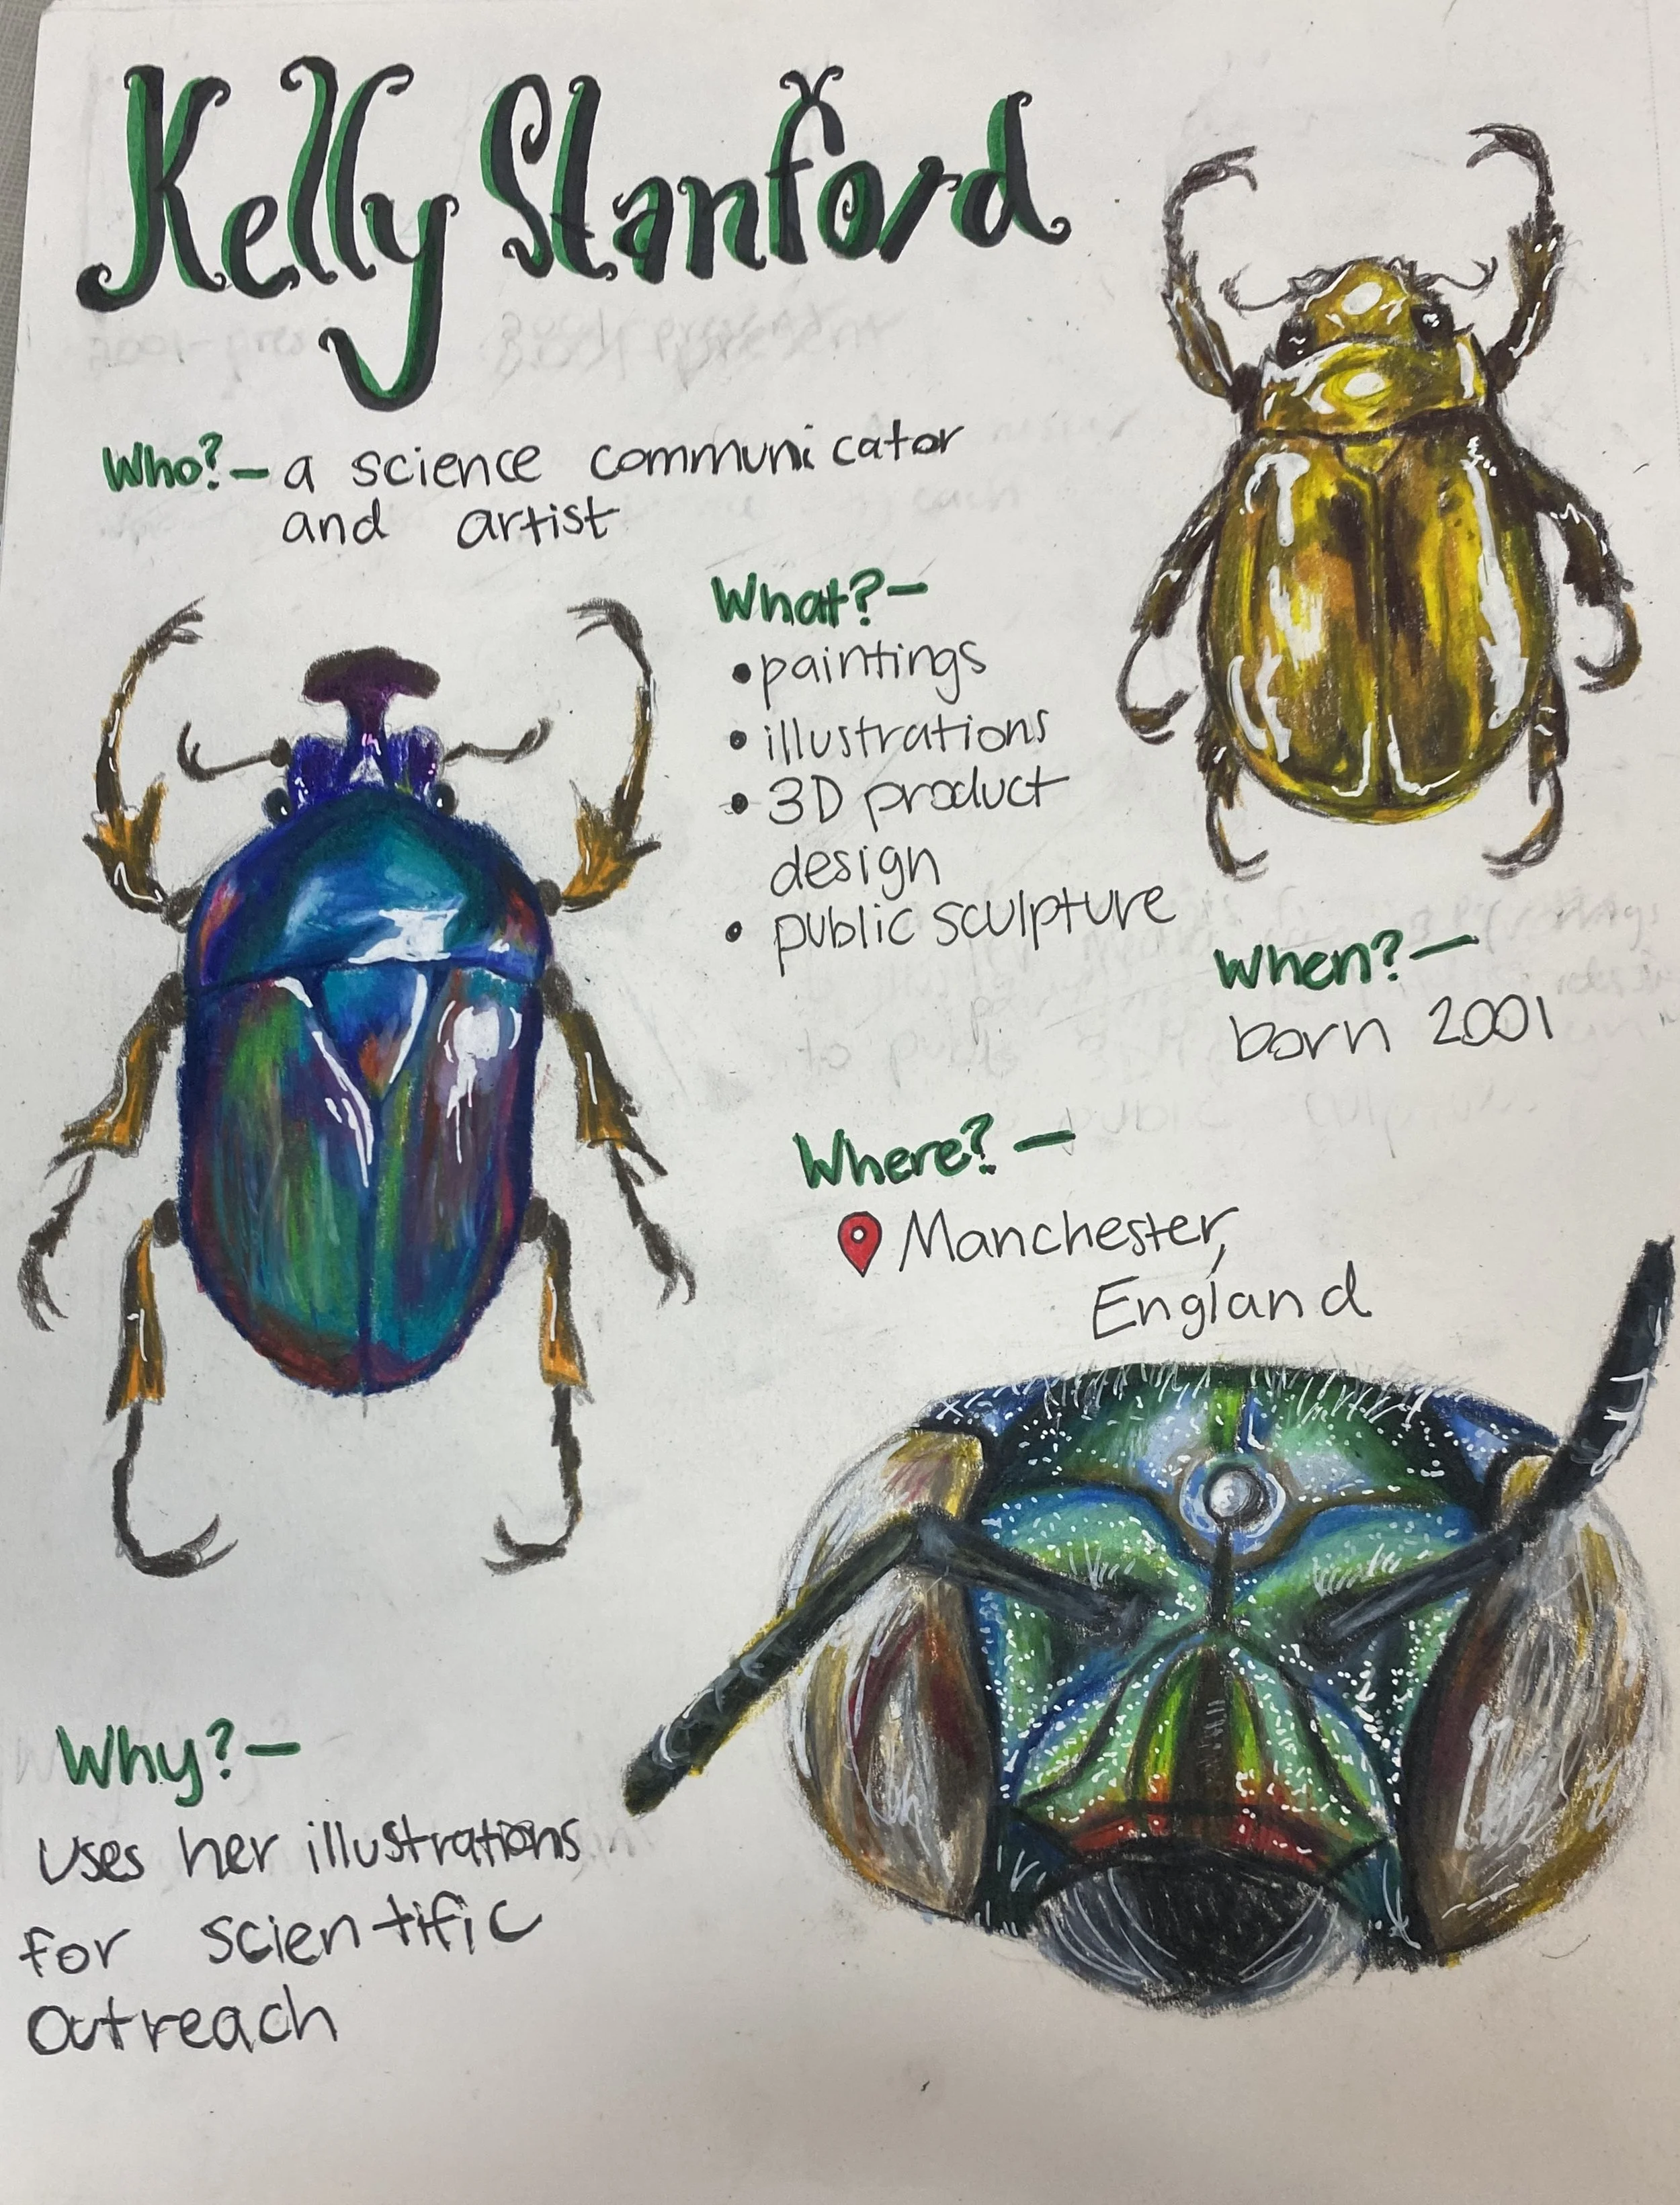 Kelly Stanford
Who?- a science communicator
and artist
What?-
• paintings
• illustrations
• 3D product
design
• public sculpture
When?-
born 2001
Where?-
Manchester,
England
Why?-
Uses her illustrations
for scientific
outreach